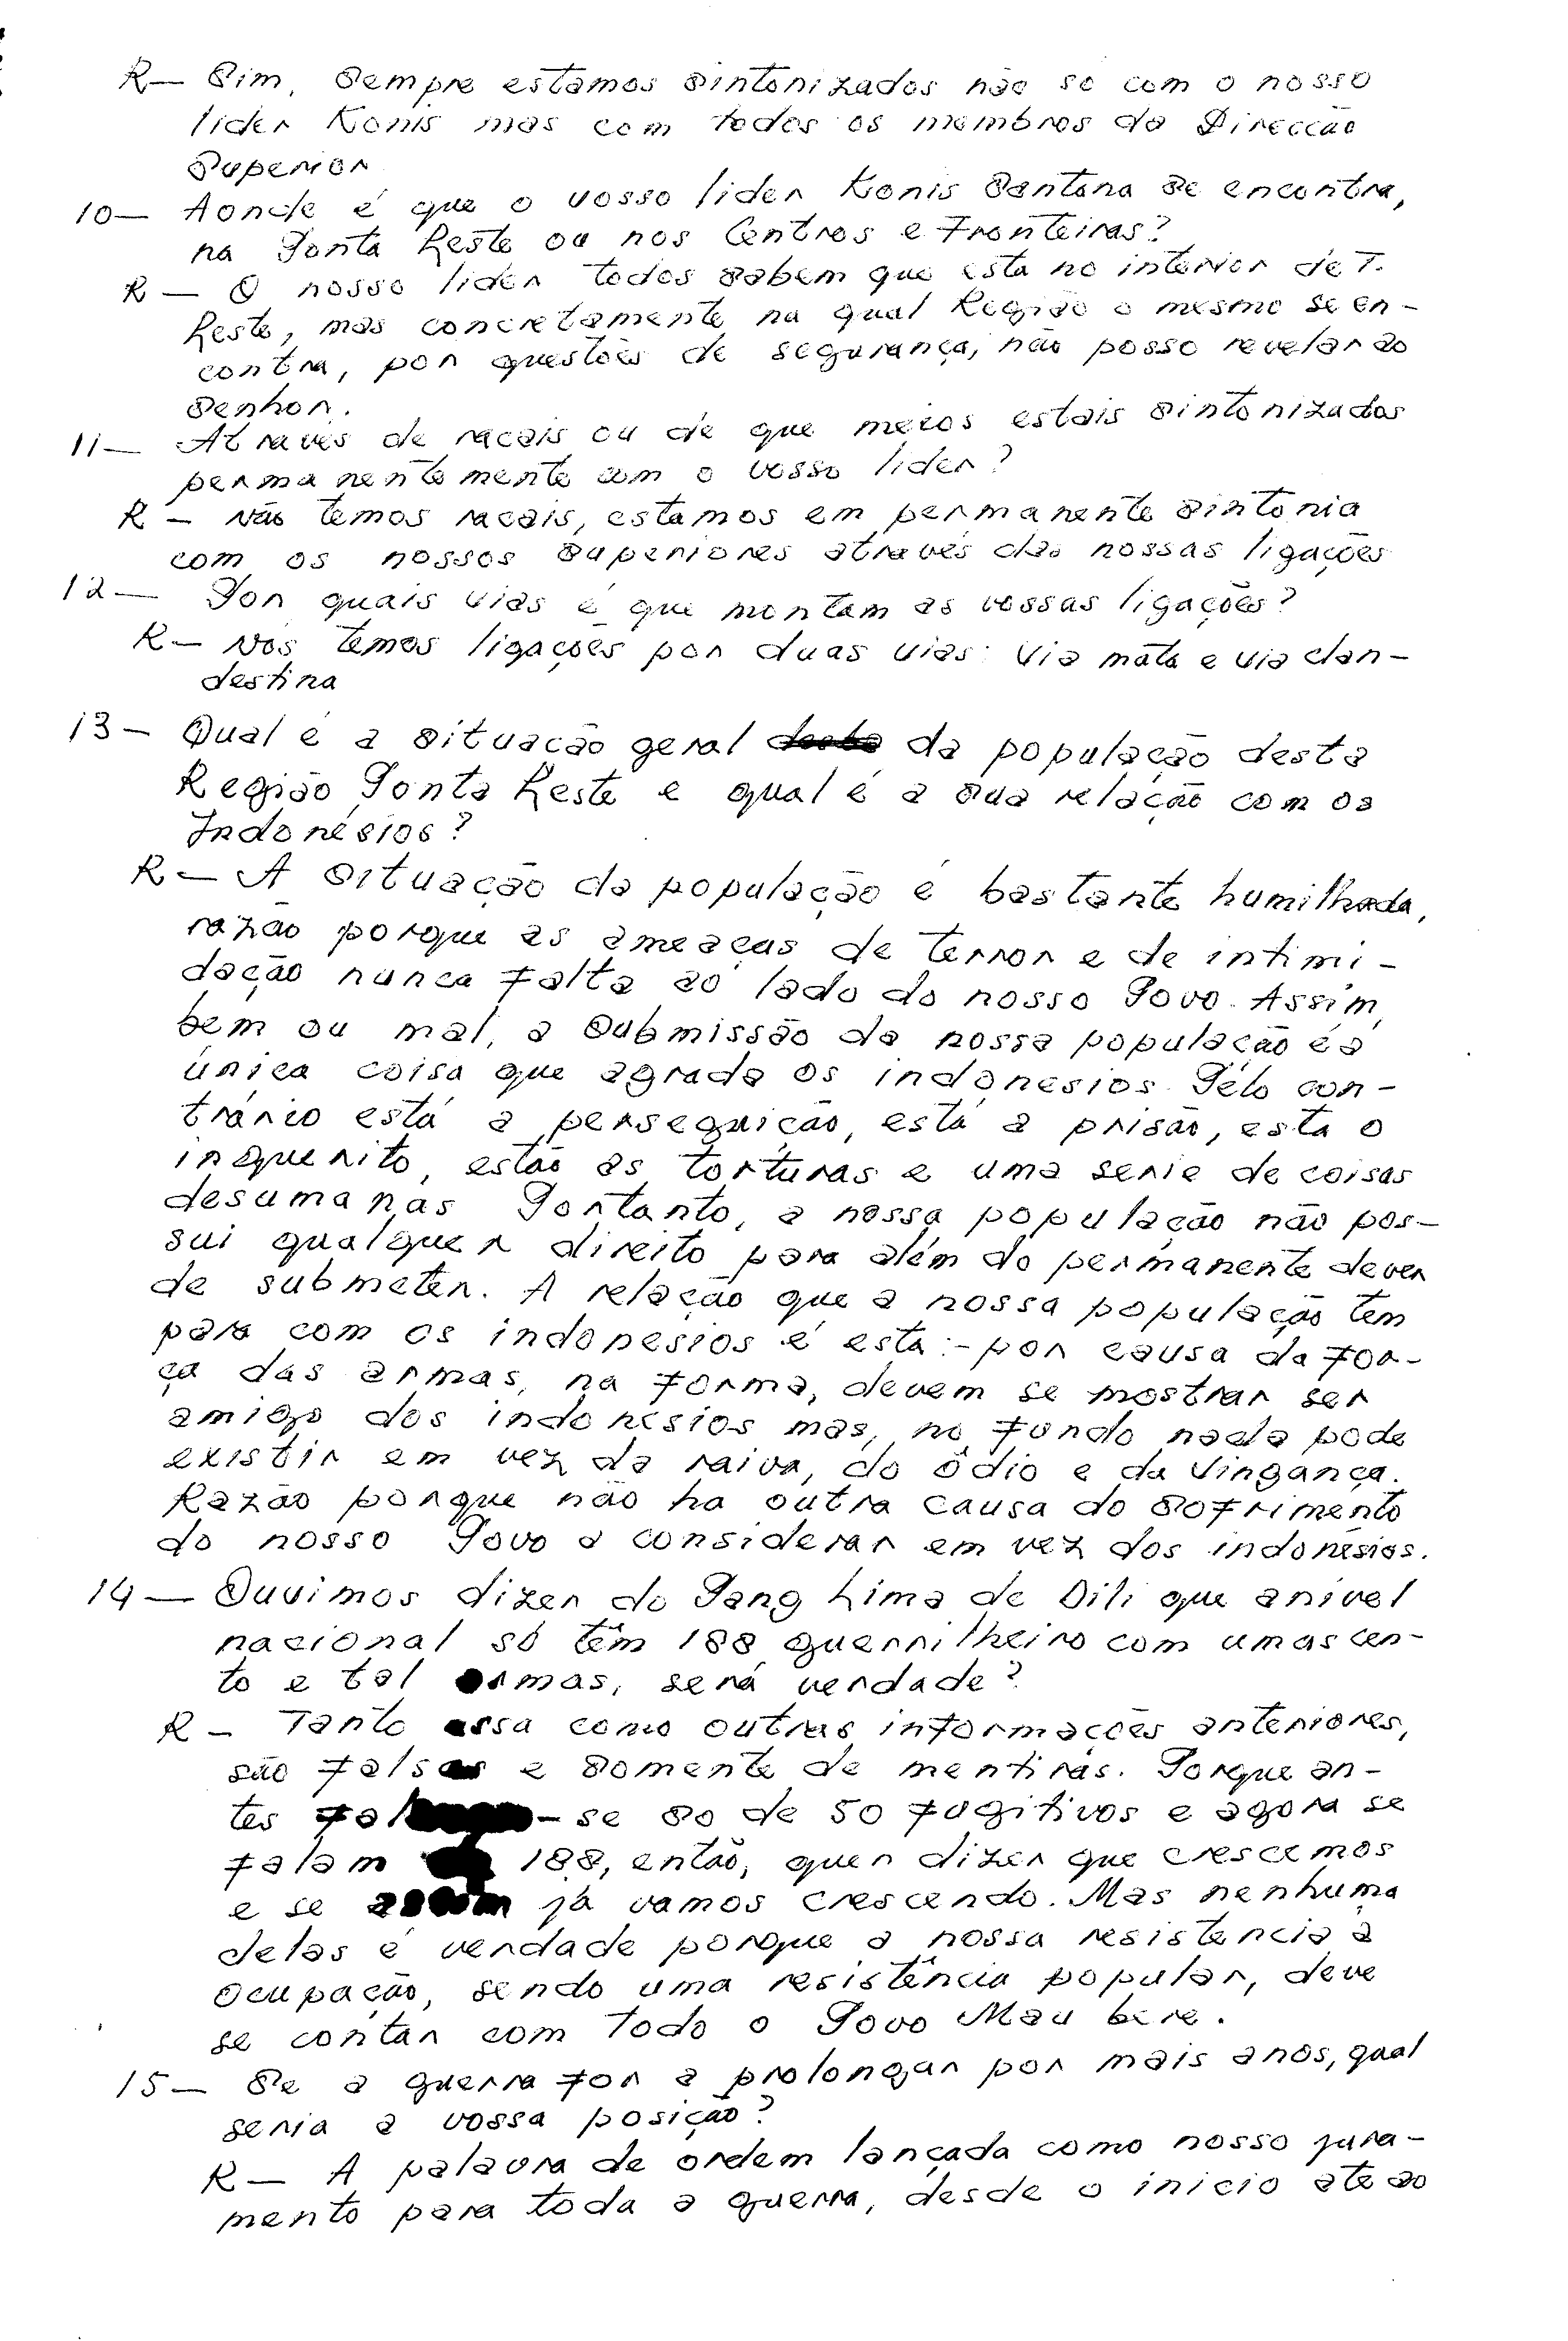 R— Sim, Sempre estamos sintonizados não so com o nosso
lider Konis mas com todos os membros da Direcção
Superior
10— Aonde é que o vosso lider Konis Santana se encontra,
na Ponta Leste ou nos Centros e Fronteiras?
R — O nosso lider todos sabem que esta no interior de T.
Leste, mas concretamente na qual Região o mesmo se en-
contra, por questões de segurança, não posso revelar ao
Senhor.
11— Através de racais ou de que meios estais sintonizados
permanentemente com o vosso lider?
R — Não temos racais, estamos em permanente sintonia
com os nossos superiores através das nossas ligações
12— Por quais vias é que montam as vossas ligações?
R— Nós temos ligações por duas vias: Via mata e via clan-
destina
13— Qual é a situacão geral da população desta
Região Ponta Leste e qual é a sua relação com os
Indonésios?
R— A situação da população é bastante humilhada,
razão porque as ameaças de terror e de intimi-
dação nunca falta ao lado do nosso Povo. Assim,
bem ou mal, a submissão da nossa população é a
única coisa que agrada os indonesios. Pelo con-
trário está a perseguição, está a prisão, esta o
inquerito, estão as torturas e uma serie de coisas
desumanas Portanto, a nossa população não pos-
sui qualquer direito para além do permanente dever
de submeter. A relação que a nossa população tem
para com os indonesios é esta:- por causa da for-
ça das armas, na forma, devem se mostrar ser
amigo dos indonésios mas, no fundo nada pode
existir em vez da raiva, do ódio e da vingança.
Razão porque não ha outra causa do sofrimento
do nosso Povo a considerar em vez dos indonésios.
14— Ouvimos dizer do Pang Lima de Dili que a nível
nacional só têm 188 guerrilheiro com umas cen-
to e tal armas, será verdade?
R — Tanto essa como outras informações anteriores,
são falsas e somente de mentiras. Porque an-
tes -se so de 50 fugitivos e agora se
falam 188, então, quer dizer que crescemos
e se assim já vamos crescendo. Mas nenhuma
delas é verdade porque a nossa resistencia à
ocupação, sendo uma resistência popular, deve
se contar com todo o Povo Mau bere.
15— Se a guerra for a prolongar por mais anos, qual
seria a vossa posição?
R— A palavra de ordem lançada como nosso jura-
mento para toda a guerra, desde o inicio ate ao